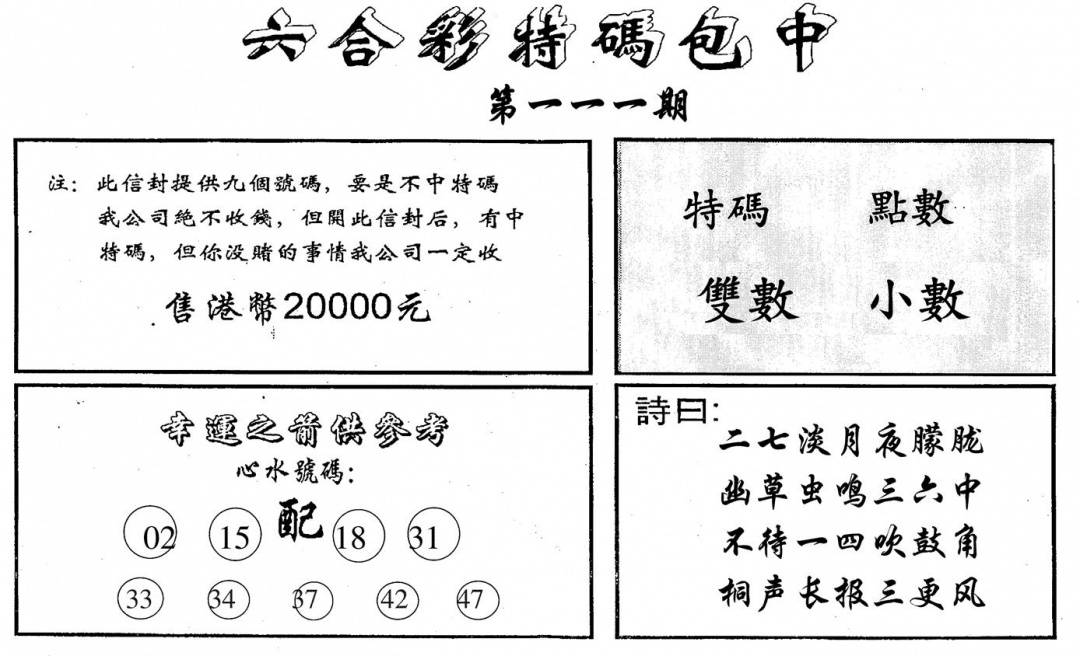 六合彩特碼包中
第一一一期
注：此信封提供九個號碼，要是不中特碼
我公司絕不收錢，但開此信封后，有中
特碼，但你没賭的事情我公司一定收
售港幣20000元
特碼 點數
雙數 小數
幸運之箭供參考
心水號碼：
02 15 配 18 31
33 34 37 42 47
詩曰：
二七淡月夜朦胧
幽草虫鸣三六中
不待一四吹鼓角
桐声长报三更风